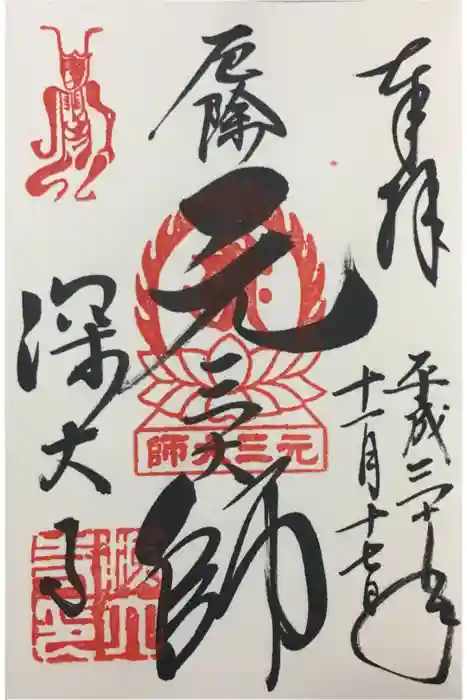 奉拝
平成二十五年
十一月十七日
厄除
元三大師
元三大師
深大寺